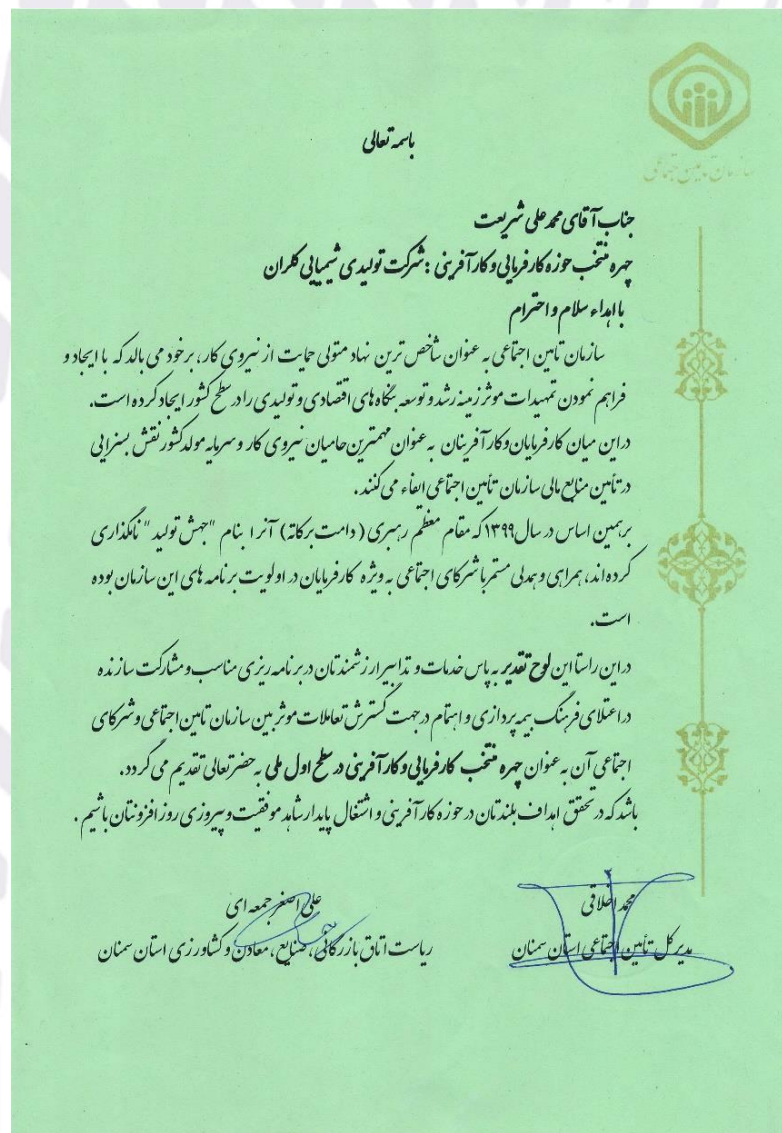 باسمه تعالی
سازمان تامین اجتماعی
جناب آقای محمدعلی شریعت
چهره منتخب حوزه کارفرمایی و کارآفرینی : شرکت تولیدی شیمیایی کلران
با اهداء سلام و احترام
سازمان تامین اجتماعی به عنوان شاخص ترین نهاد متولی حمایت از نیروی کار، بر خود می بالد که با ایجاد و
فراهم نمودن تمهیدات موثر زمینه رشد و توسعه بنگاه های اقتصادی و تولیدی را در سطح کشور ایجاد کرده است.
در این میان کارفرمایان و کارآفرینان به عنوان مهمترین حامیان نیروی کار و سرمایه مولد کشور نقش بسزایی
در تأمین منابع مالی سازمان تأمین اجتماعی ایفاء می کنند.
بر همین اساس در سال ۱۳۹۹ که مقام معظم رهبری (دامت برکاته) آنرا بنام "جهش تولید" نامگذاری
کرده اند، همراهی و همدلی مستمر با شرکای اجتماعی به ویژه کارفرمایان در اولویت برنامه های این سازمان بوده
است.
در این راستا این لوح تقدیر به پاس خدمات و تدابیر ارزشمندتان در برنامه ریزی مناسب و مشارکت سازنده
در اعتلای فرهنگ بیمه پردازی و اهتمام در جهت گسترش تعاملات موثر بین سازمان تامین اجتماعی و شرکای
اجتماعی آن به عنوان چهره منتخب کارفرمایی و کارآفرینی در سطح اول ملی به حضرتعالی تقدیم می گردد.
باشد که در تحقق اهداف بلندتان در حوزه کارآفرینی و اشتغال پایدار شاهد موفقیت و پیروزی روزافزونتان باشیم .
محمد اخلاقی
مدیر کل تأمین اجتماعی استان سمنان
علی اصغر جمعه ای
ریاست اتاق بازرگانی، صنایع، معادن و کشاورزی استان سمنان